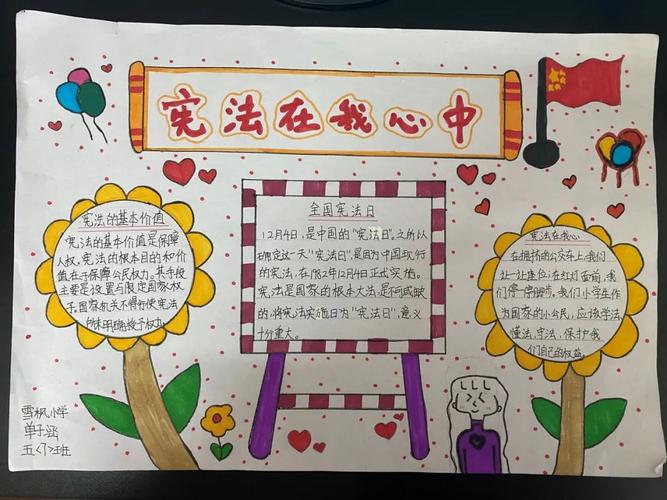 宪法在我心中
宪法的基本价值
宪法的基本价值是保障
人权,宪法的根本目的和价
值在于保障公民权力。其手段
主要是设置与限定国家权
子,国家机关不得行使宪法
所未明确授予权力。
全国宪法日
12月4日,是中国的“宪法日”。之所以
确定这一天“宪法日”,是因为中国现行
的宪法,在1982年12月4日正式实施。
宪法是国家的根本大法,是不可或缺
的,将宪法实施日为“宪法日”,意义
十分重大。
宪法在我心
在拥挤的公交车上,我们
让一让座位;在红灯面前,我
们停一停脚步。我们小学生作
为国家的小公民,应该学法,
懂法,守法,保护我
们自己的权益。
雪枫小学
单子涵
五〈7〉班